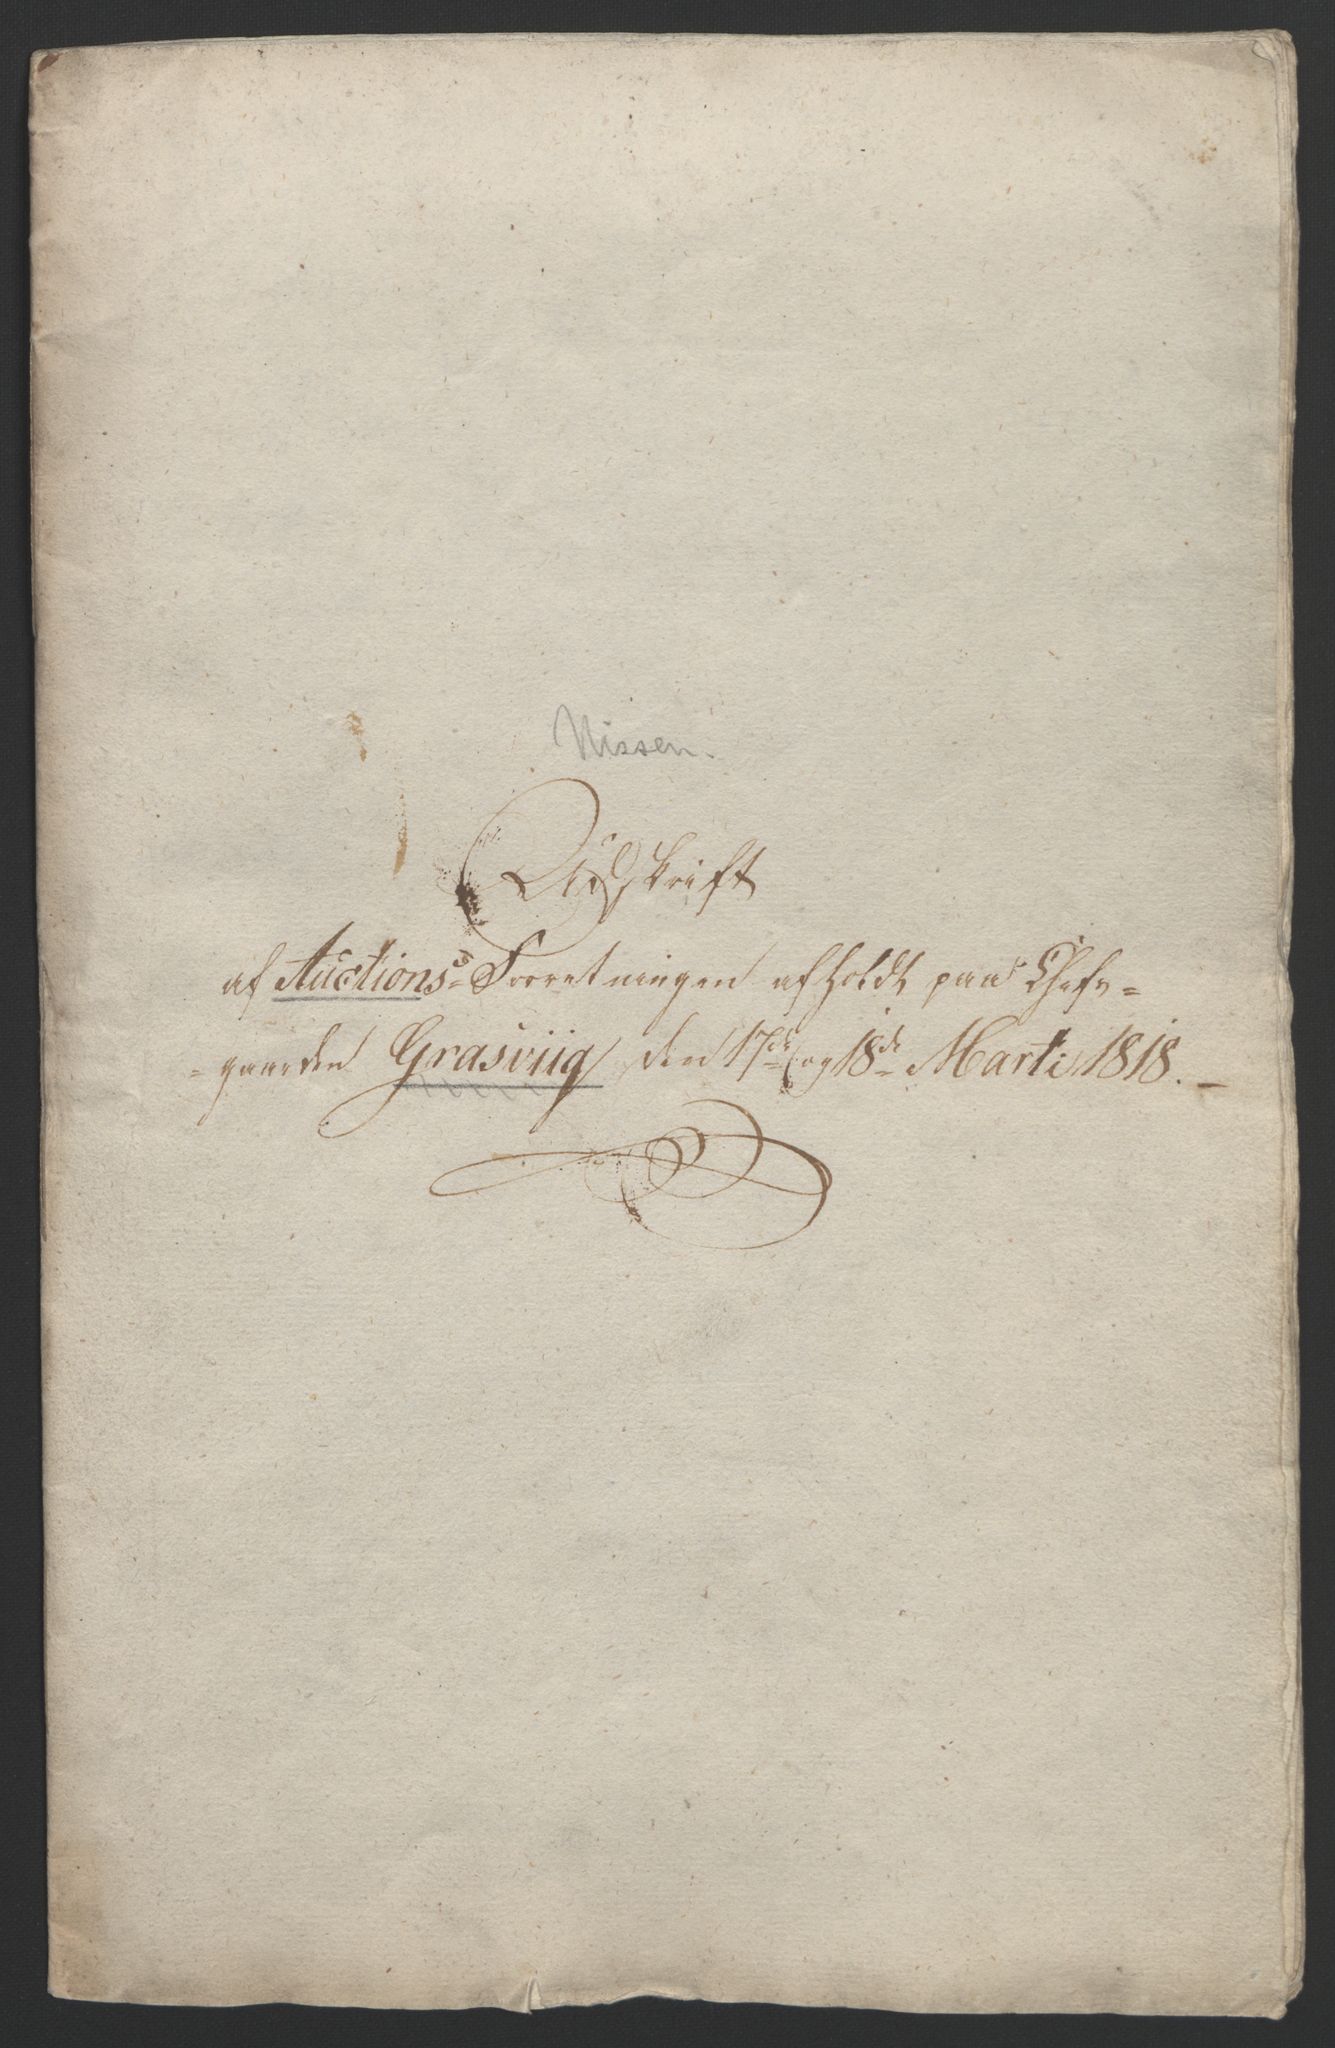 Nissen.
Udskrift
af Auctions=Forretningen afholdt paa Chefs=
=gaarden Grasviig den 17de og 18de Marti 1818.